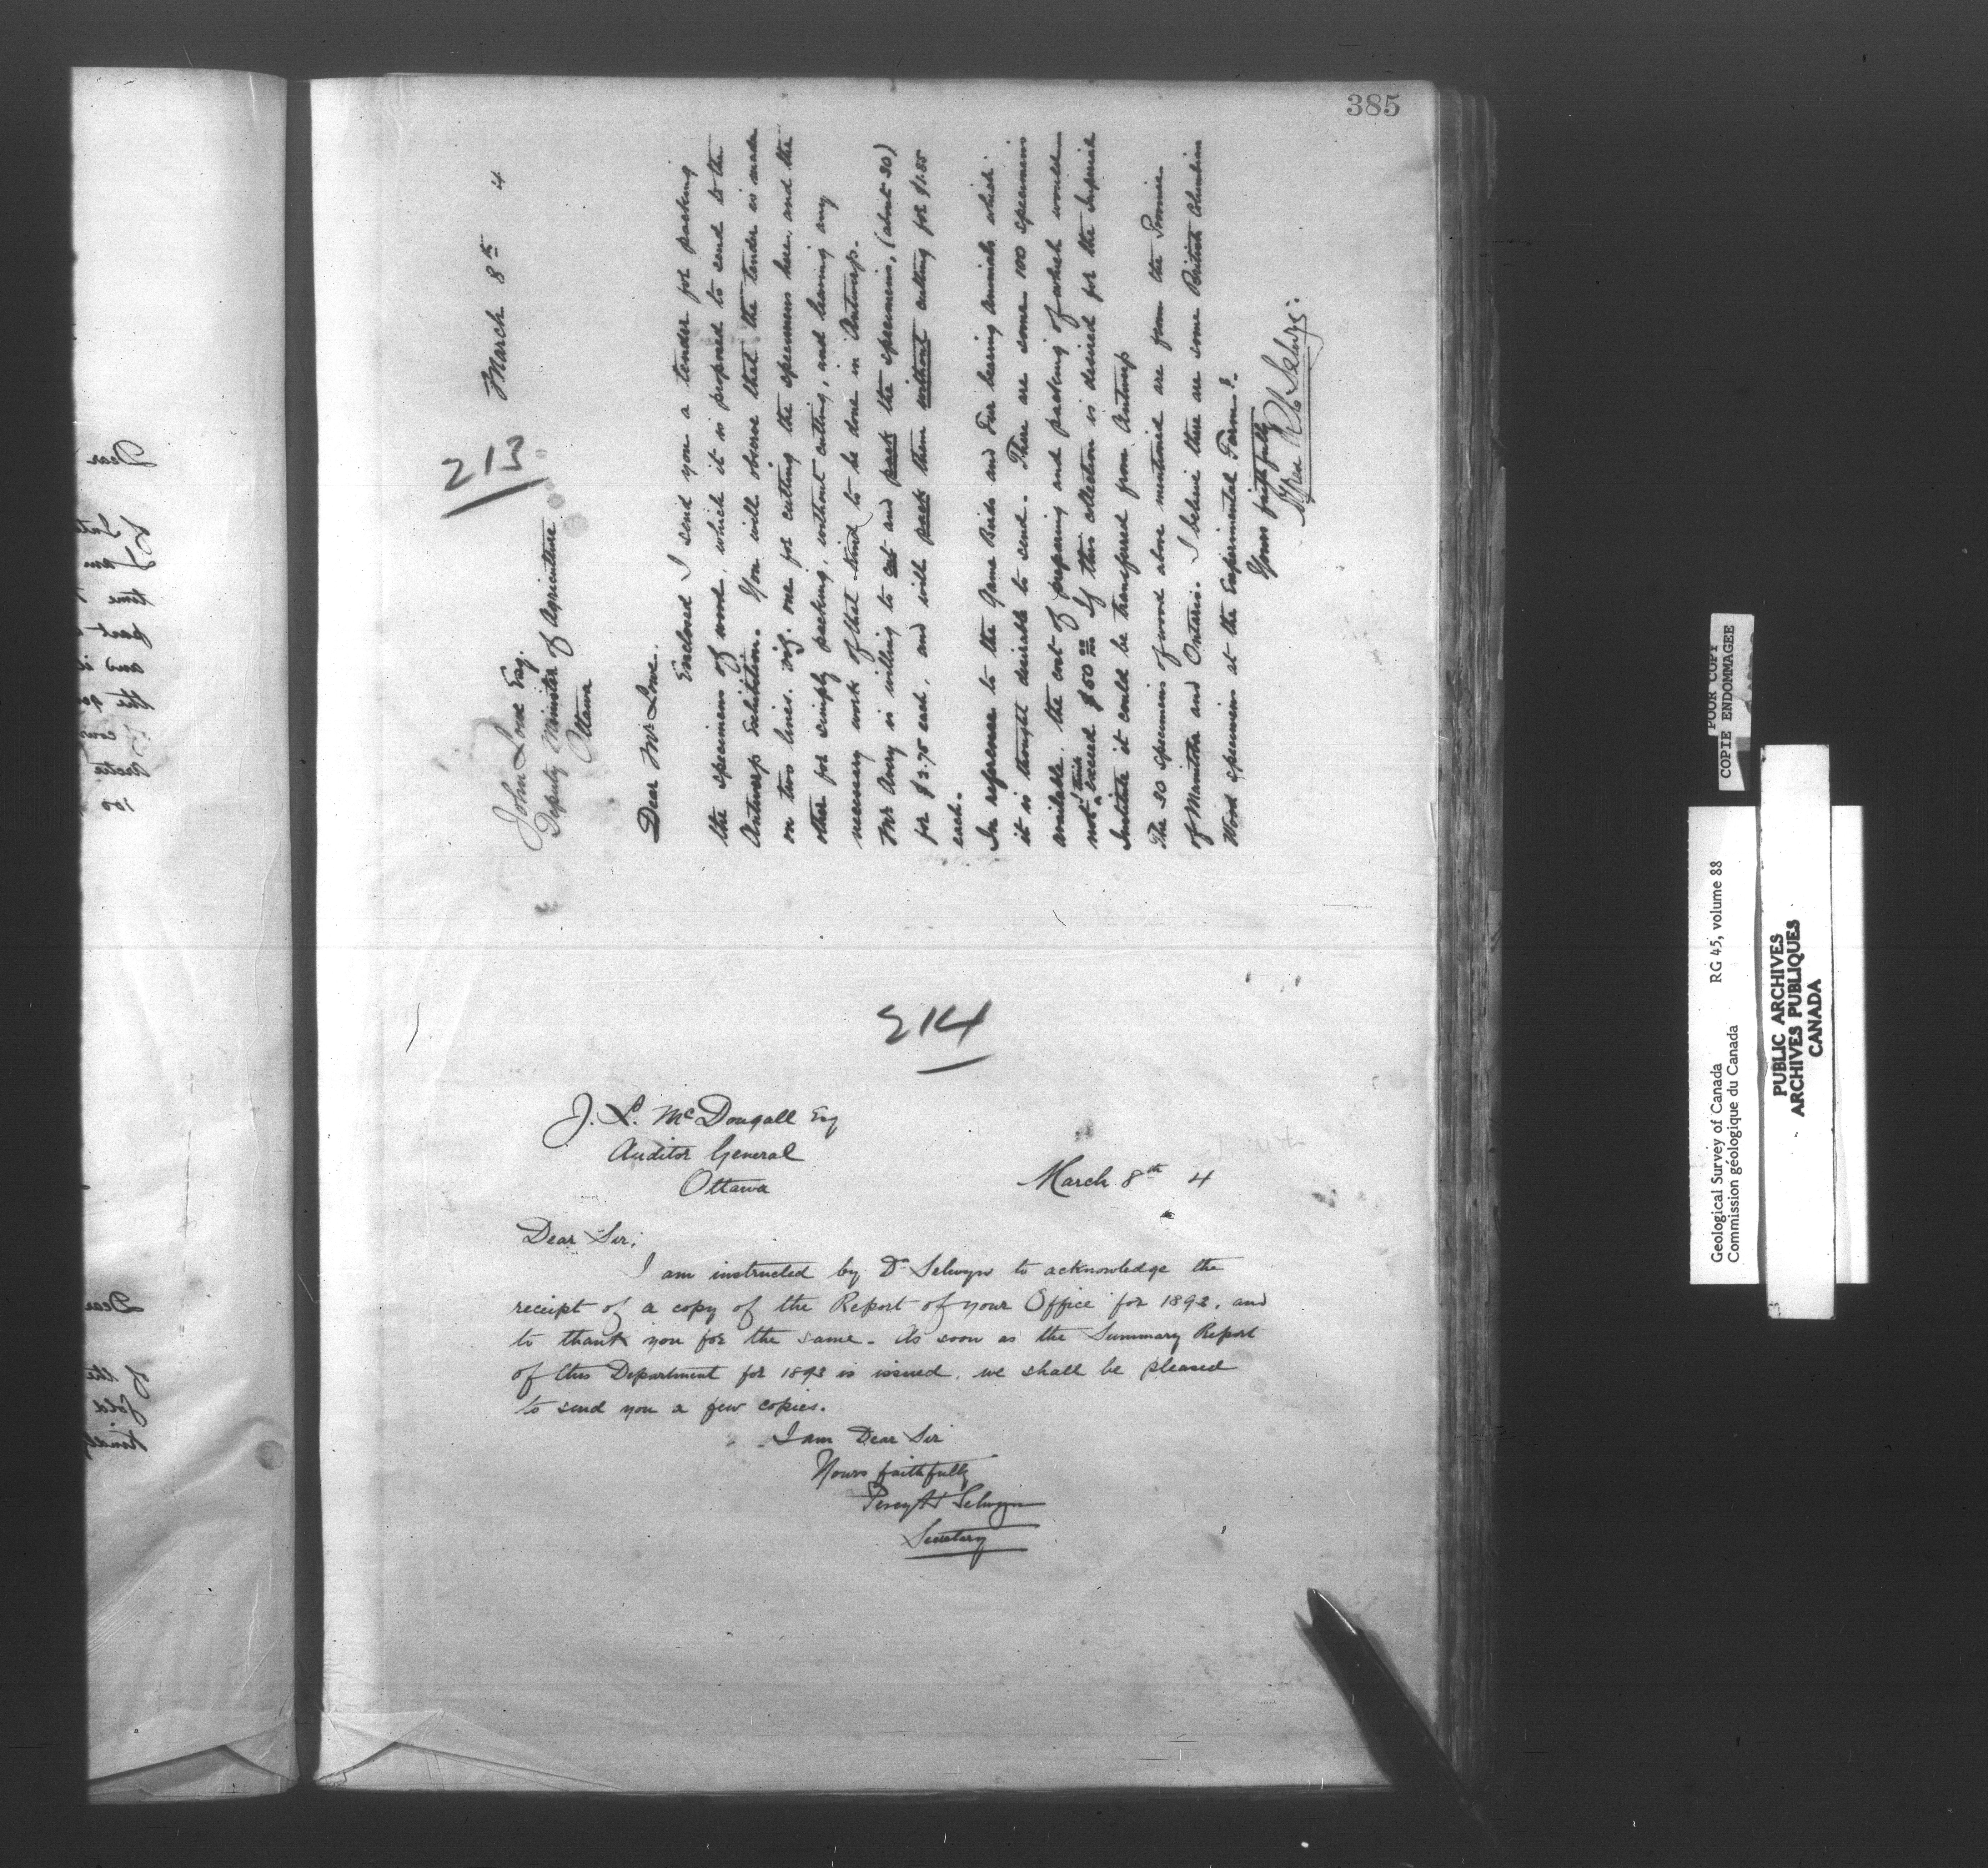 385
213
March 8th 4
John Lowe Esq.
Deputy Minister of Agriculture
Ottawa
Dear Mr Lowe.
Enclosed I send you a tender for packing
the specimens of wood, which it is proposed to send to the
Antwerp Exhibition. You will observe that the tender is made
on two lines. viz. one for cutting the specimens here, and the
other for simply packing, without cutting, and leaving any
necessary work of that kind to be done in Antwerp.
Mr Avery is willing to cut and pack the specimens, (about 30)
for $2.75 each, and will pack them without cutting for $1.55
each.
In reference to the Game Birds and Fur bearing animals which
it is thought desirable to send. There are some 100 specimens
available, the cost of preparing and packing of which would
not I think exceed $50 00 If this collection is desired for the Imperial
Institute it could be transferred from Antwerp
The 30 specimens of wood above mentioned are from the Province
of Manitoba and Ontario. I believe there are some British Columbian
Wood specimens at the Experimental Farm?.
Yours faithfully
Alfred R C Selwyn
214
J. L. McDougall Esq
Auditor General
Ottawa
March 8th 4
Dear Sir;
I am instructed by Dr Selwyn to acknowledge the
receipt of a copy of the Report of your Office for 1893, and
to thank you for the same. As soon as the Summary Report
of this Department for 1893 is issued, we shall be pleased
to send you a few copies.
I am Dear Sir
Yours faithfully
Percy H Selwyn
Secretary
POOR COPY
COPIE ENDOMMAGEE
Geological Survey of Canada RG 45, volume 88
Commission géologique du Canada
PUBLIC ARCHIVES
ARCHIVES PUBLIQUES
CANADA